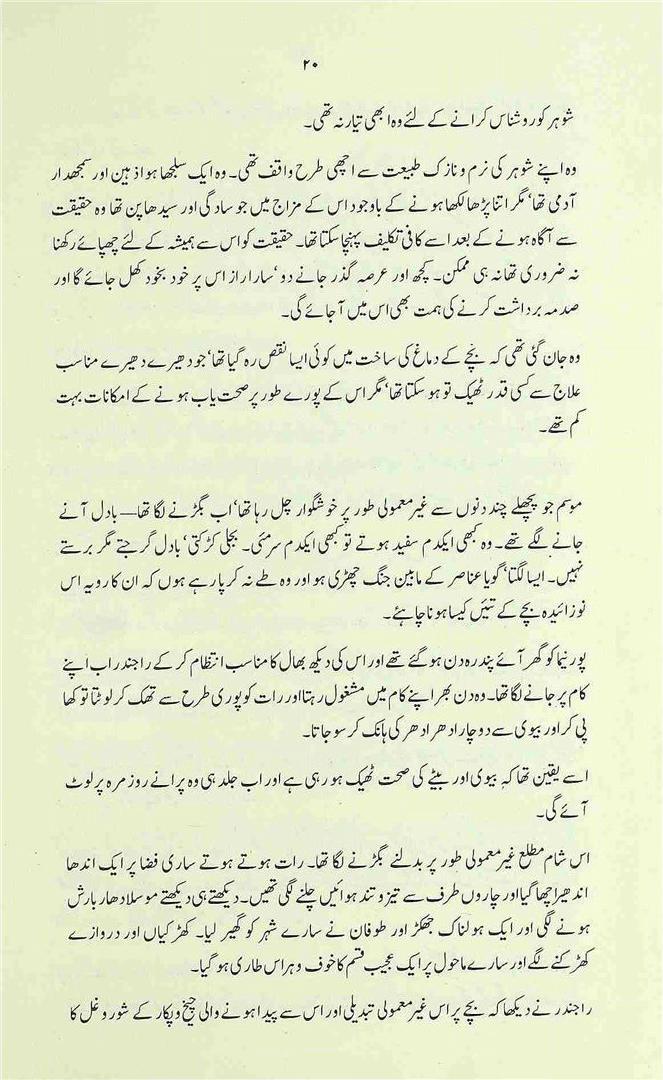 ۲۰
شوہر کو روشناس کرانے کے لئے وہ ابھی تیار نہ تھی۔
وہ اپنے شوہر کی نرم و نازک طبیعت سے اچھی طرح واقف تھی۔ وہ ایک سلجھا ہوا ذہین اور سمجھدار
آدمی تھا‘ مگر اتنا پڑھا لکھا ہونے کے باوجود اس کے مزاج میں جو سادگی اور سیدھا پن تھا وہ حقیقت
سے آگاہ ہونے کے بعد اسے کافی تکلیف پہنچا سکتا تھا۔ حقیقت کو اس سے ہمیشہ کے لئے چھپائے رکھنا
نہ ضروری تھا نہ ہی ممکن۔ کچھ اور عرصہ گذر جانے دو‘ سارا راز اس پر خود بخود کھل جائے گا اور
صدمہ برداشت کرنے کی ہمت بھی اس میں آ جائے گی۔
وہ جان گئی تھی کہ بچے کے دماغ کی ساخت میں کوئی ایسا نقص رہ گیا تھا‘ جو دھیرے دھیرے مناسب
علاج سے کسی قدر ٹھیک تو ہو سکتا تھا‘ مگر اس کے پورے طور پر صحت یاب ہونے کے امکانات بہت
کم تھے۔
موسم جو پچھلے چند دنوں سے غیر معمولی طور پر خوشگوار چل رہا تھا‘ اب بگڑنے لگا تھا— بادل آنے
جانے لگے تھے۔ وہ کبھی ایکدم سفید ہوتے تو کبھی ایکدم سرمئی۔ بجلی کڑکتی‘ بادل گرجتے مگر برستے
نہیں۔ ایسا لگتا‘ گویا عناصر کے مابین جنگ چھڑی ہو اور وہ طے نہ کر پا رہے ہوں کہ ان کا رویہ اس
نوزائیدہ بچے کے تئیں کیسا ہونا چاہئے۔
پورنیما کو گھر آئے پندرہ دن ہو گئے تھے اور اس کی دیکھ بھال کا مناسب انتظام کر کے راجندر اب اپنے
کام پر جانے لگا تھا۔ وہ دن بھر اپنے کام میں مشغول رہتا اور رات کو پوری طرح سے تھک کر لوٹتا تو کھا
پی کر اور بیوی سے دو چار ادھر ادھر کی ہانک کر سو جاتا۔
اسے یقین تھا کہ بیوی اور بیٹے کی صحت ٹھیک ہو رہی ہے اور اب جلد ہی وہ پرانے روز مرہ پر لوٹ
آئے گی۔
اس شام مطلع غیر معمولی طور پر بدلنے بگڑنے لگا تھا۔ رات ہوتے ہوتے ساری فضا پر ایک اندھا
اندھیرا چھا گیا اور چاروں طرف سے تیز و تند ہوائیں چلنے لگی تھیں۔ دیکھتے ہی دیکھتے موسلا دھار بارش
ہونے لگی اور ایک ہولناک جھکڑ اور طوفان نے سارے شہر کو گھیر لیا۔ کھڑکیاں اور دروازے
کھڑکنے لگے اور سارے ماحول پر ایک عجیب قسم کا خوف و ہراس طاری ہو گیا۔
راجندر نے دیکھا کہ بچے پر اس غیر معمولی تبدیلی اور اس سے پیدا ہونے والی چیخ و پکار کے شور و غل کا